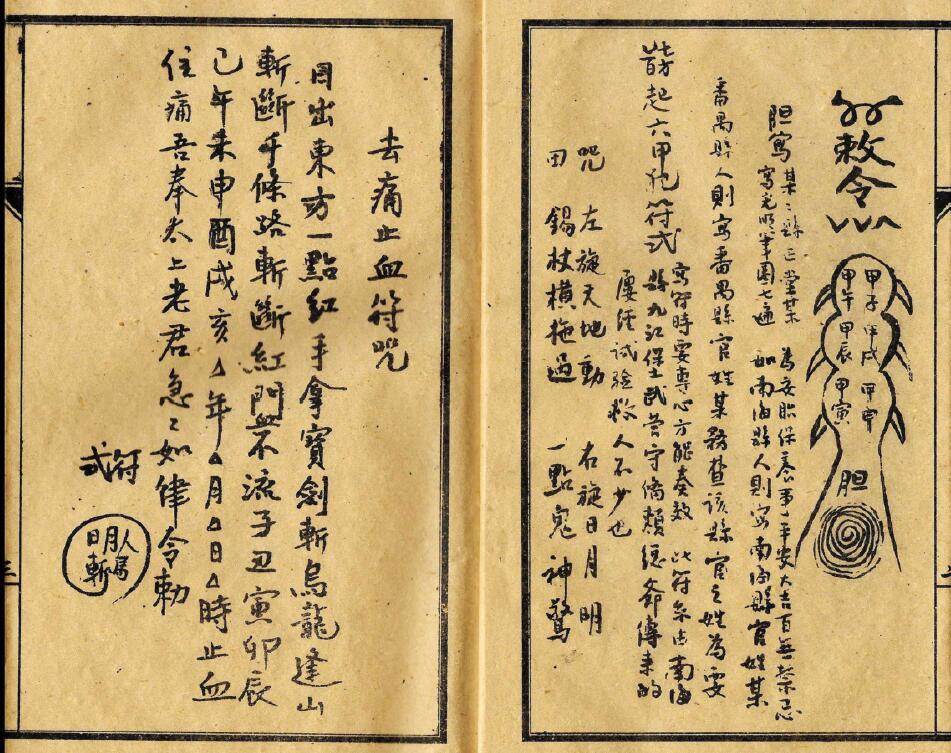 敕令
甲子 甲戌 甲申
甲午 甲辰 甲寅
胆
胆寫
某〻縣正堂某 為安胎保養事 平安大吉百無禁忌
寫光明筆圈七遍 如南海縣人則寫南海縣官姓某
番禺縣人則寫番禺縣官姓某 務查該縣官之姓為要
起六甲胞符式
寫符時要專心方能奏效 此符系由南海
縣九江保土武營守備賴 爺傳來的
屢經試驗救人不少也
咒 左旋天地動 右旋日月明
錫杖橫拖過 一點鬼神驚
去痛止血符咒
日出東方一點紅手拿寶劍斬烏龍逢山
斬斷千條路斬斷紅門血不流子丑寅卯辰
巳午未申酉戌亥△年△月△日△時止血
住痛吾奉太上老君急〻如律令勅
符式